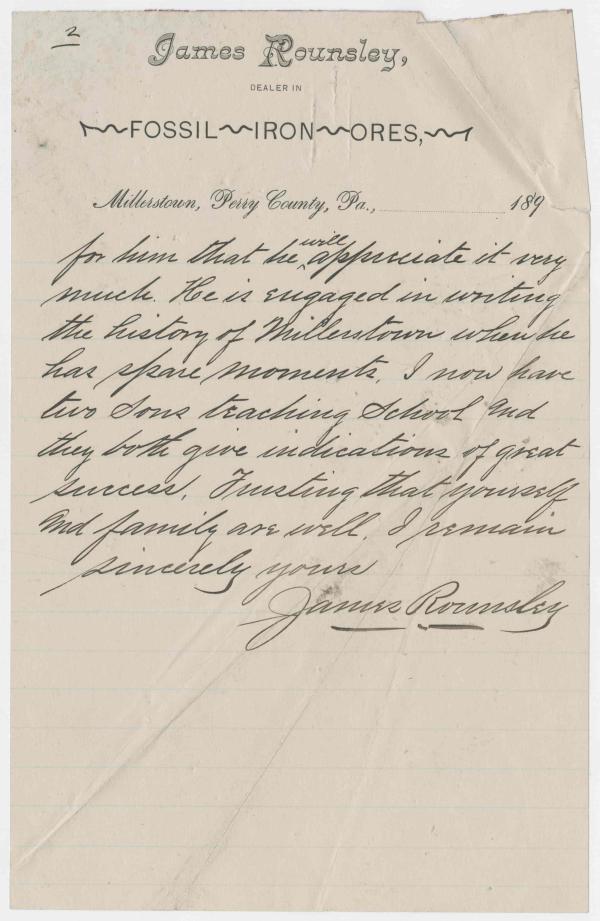 2
James Rounsley,
DEALER IN
FOSSIL IRON ORES,
Millerstown, Perry County, Pa., 189
for him that he will appreciate it very
much. He is engaged in writing
the history of Millerstown when he
has spare moments. I now have
two Sons teaching School and
they both give indications of great
success. Trusting that yourself
and family are well. I remain
sincerely yours
James Rounsley